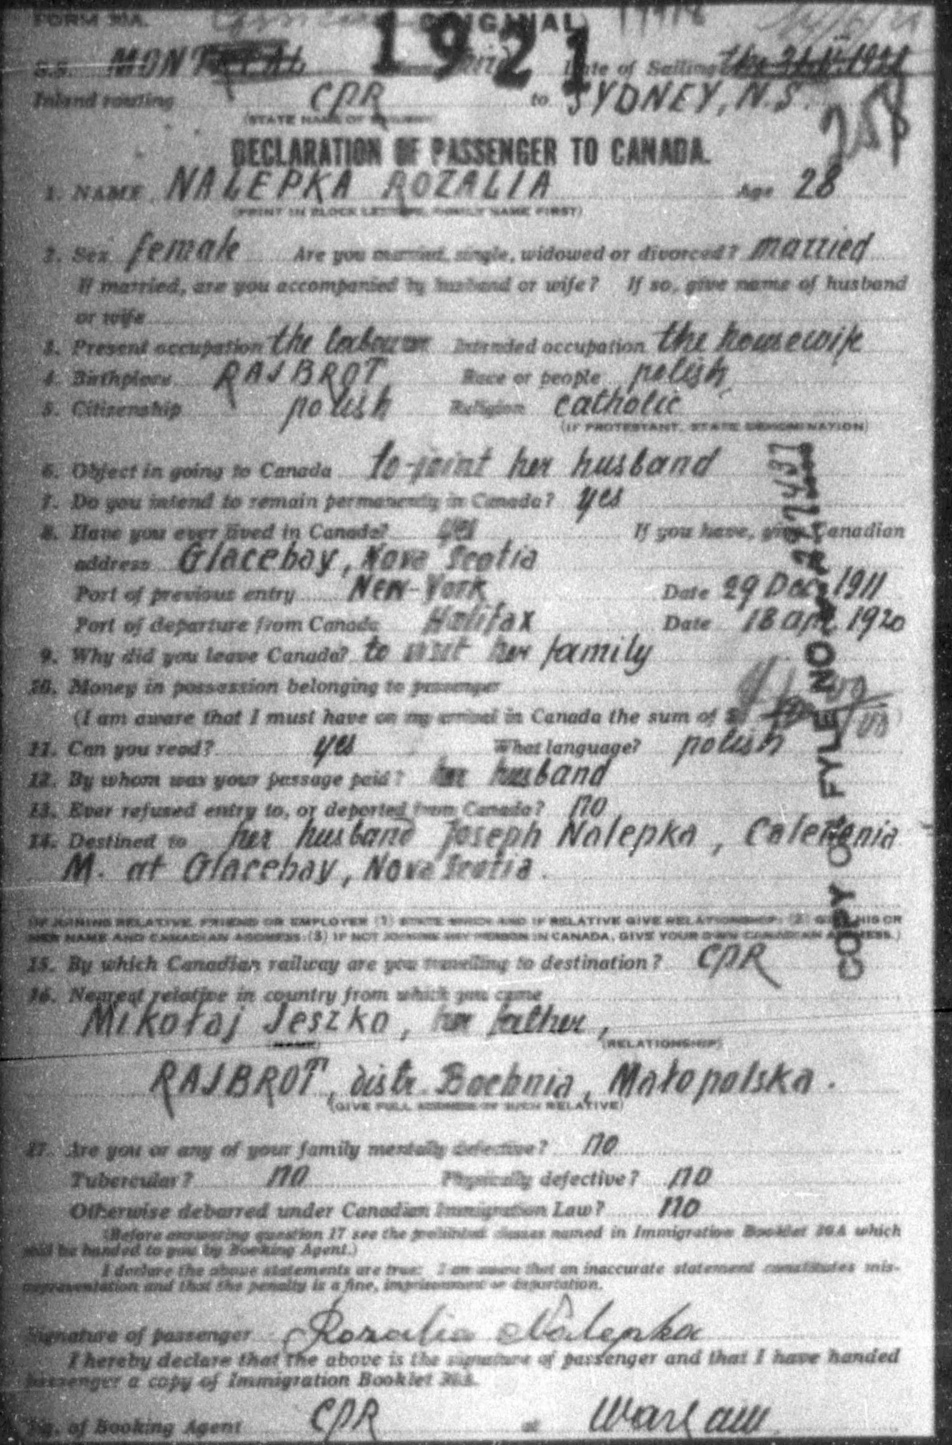 FORM 30A. ORIGINAL
1921
S.S. MONTREAL Date of Sailing
Inland routing CPR to SYDNEY, N.S.
(STATE NAME OF RAILWAY)
258
DECLARATION OF PASSENGER TO CANADA.
1. NAME NALEPKA ROZALIA Age 28
(PRINT IN BLOCK LETTERS, FAMILY NAME FIRST)
2. Sex female Are you married, single, widowed or divorced? married
If married, are you accompanied by husband or wife? If so, give name of husband
or wife
3. Present occupation the labourer Intended occupation the housewife
4. Birthplace RAJBROT Race or people polish
5. Citizenship polish Religion catholic
(IF PROTESTANT, STATE DENOMINATION)
6. Object in going to Canada to joint her husband
7. Do you intend to remain permanently in Canada? yes
8. Have you ever lived in Canada? yes If you have, give Canadian
address Glacebay, Nova Scotia
Port of previous entry New-York Date 29 Dec. 1911
Port of departure from Canada Halifax Date 18 apr. 1920
9. Why did you leave Canada? to visit her family
10. Money in possession belonging to passenger
(I am aware that I must have on my arrival in Canada the sum of $
11. Can you read? yes What language? polish
12. By whom was your passage paid? her husband
13. Ever refused entry to, or deported from Canada? no
14. Destined to her husband Joseph Nalepka, Caledonia
M. at Glacebay, Nova Scotia.
(IF JOINING RELATIVE, FRIEND OR EMPLOYER (1) STATE WHICH AND IF RELATIVE GIVE RELATIONSHIP: (2) GIVE HIS OR
HER NAME AND CANADIAN ADDRESS: (3) IF NOT JOINING ANY PERSON IN CANADA, GIVE YOUR OWN CANADIAN ADDRESS.)
COPY ON FYLE NO.
15. By which Canadian railway are you travelling to destination? CPR
16. Nearest relative in country from which you came
Mikołaj Jeszko, her father,
(NAME) (RELATIONSHIP)
RAJBROT, distr. Bochnia, Małopolska.
(GIVE FULL ADDRESS OF SUCH RELATIVE)
17. Are you or any of your family mentally defective? no
Tubercular? no Physically defective? no
Otherwise debarred under Canadian Immigration Law? no
(Before answering question 17 see the prohibited classes named in Immigration Booklet 30A which
will be handed to you by Booking Agent.)
I declare the above statements are true: I am aware that an inaccurate statement constitutes mis-
representation and that the penalty is a fine, imprisonment or deportation.
Signature of passenger Rozalia Nalepka
I hereby declare that the above is the signature of passenger and that I have handed
passenger a copy of Immigration Booklet 30A.
Sig. of Booking Agent CPR at Warsaw